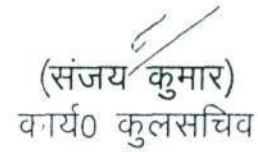 (संजय कुमार)
कार्य0 कुलसचिव